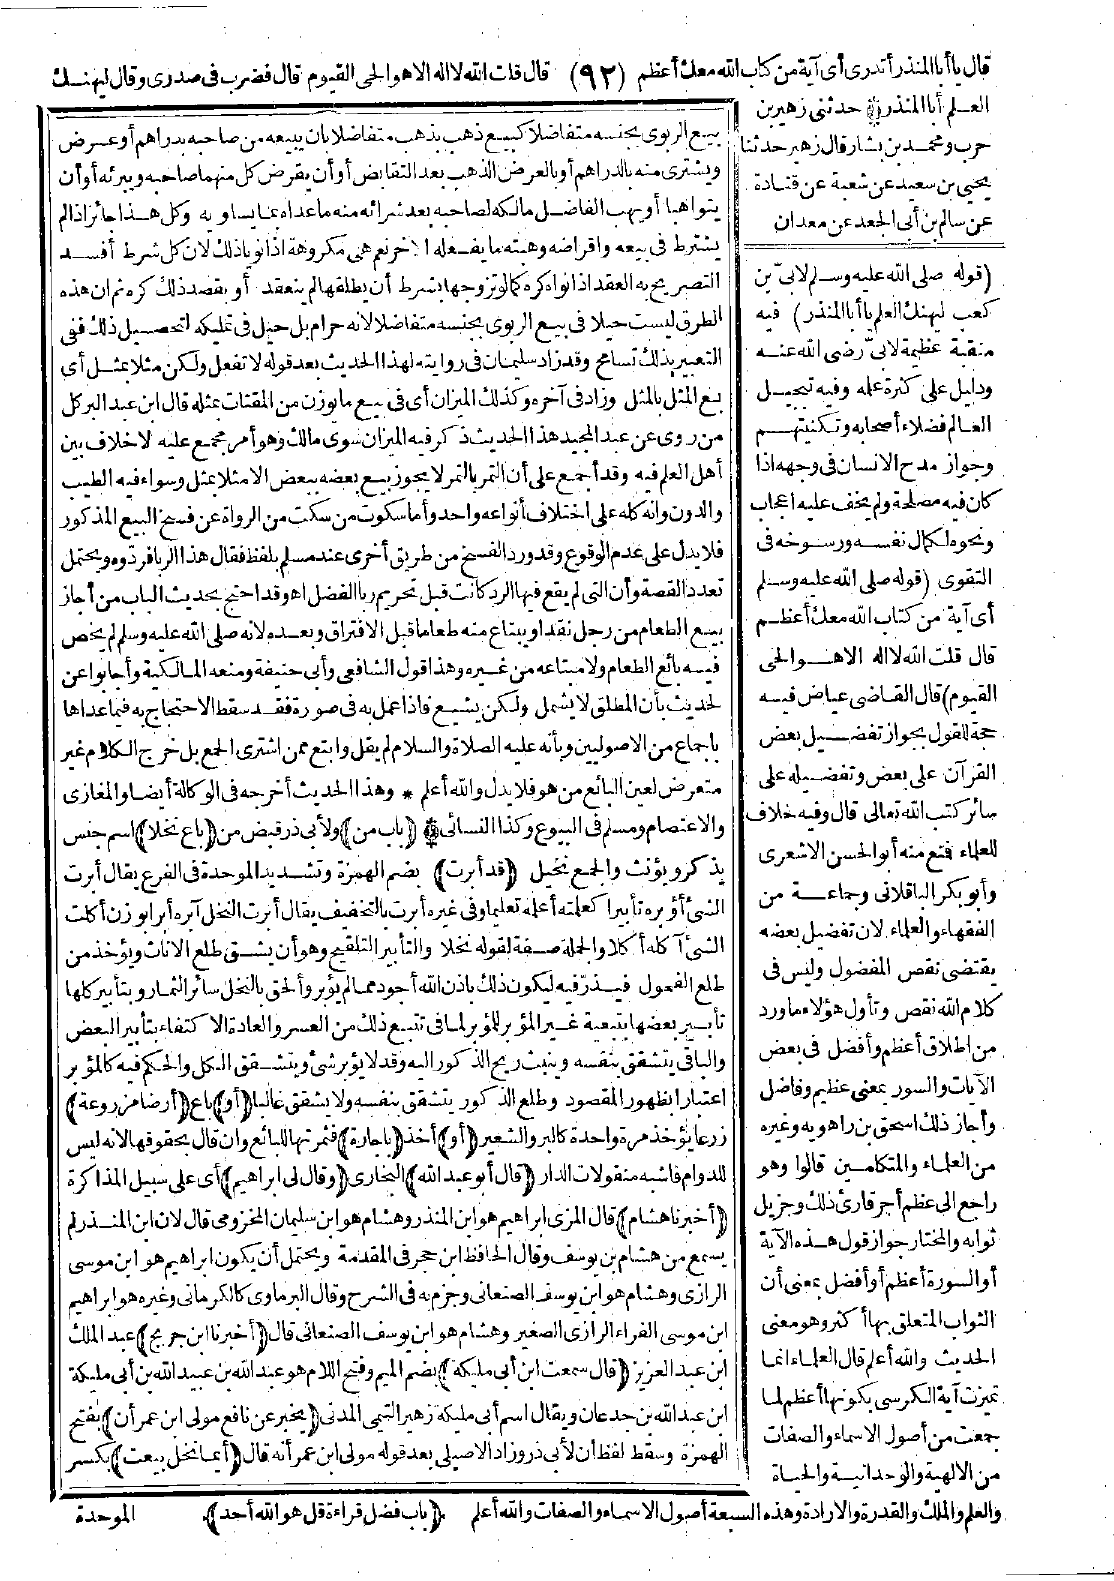 قال يا أبا المنذر أتدرى أى آية من كتاب الله معك أعظم (٩٢) قال قلت الله لا اله الا هو الحى القيوم قال فضرب فى صدرى وقال ليهنك
العلم أبا المنذر حدثنى زهير بن
حرب ومحمد بن بشار قال زهير حدثنا
يحيى بن سعيد عن شعبة عن قتادة
عن سالم بن أبى الجعد عن معدان
(قوله صلى الله عليه وسلم لابىّ بن
كعب ليهنك العلم يا أبا المنذر) فيه
منقبة عظيمة لابىّ رضى الله عنه
ودليل على كثرة علمه وفيه تبجيل
العالم فضلاء أصحابه وتكنيتهم
وجواز مدح الانسان فى وجهه اذا
كان فيه مصلحة ولم يخف عليه اعجاب
ونحوه لكمال نفسه ورسوخه فى
التقوى (قوله صلى الله عليه وسلم
أى آية من كتاب الله معك أعظم
قال قلت الله لا اله الا هو الحى
القيوم) قال القاضى عياض فيه
حجة للقول بجواز تفضيل بعض
القرآن على بعض وتفضيله على
سائر كتب الله تعالى قال وفيه خلاف
للعلماء فمنع منه أبو الحسن الاشعرى
وأبو بكر الباقلانى وجماعة من
الفقهاء والعلماء لان تفضيل بعضه
يقتضى نقص المفضول وليس فى
كلام الله نقص وتأول هؤلاء ما ورد
من اطلاق أعظم وأفضل فى بعض
الآيات والسور بمعنى عظيم وفاضل
وأجاز ذلك اسحق بن راهويه وغيره
من العلماء والمتكلمين قالوا وهو
راجع الى عظم أجر قارئ ذلك وجزيل
ثوابه والمختار جواز قول هذه الآية
أو السورة أعظم أو أفضل بمعنى أن
الثواب المتعلق بها أكثر وهو معنى
الحديث والله أعلم قال العلماء انما
تميزت آية الكرسى بكونها أعظم لما
جمعت من أصول الاسماء والصفات
من الالهية والوحدانية والحياة
والعلم والملك والقدرة والارادة وهذه السبعة أصول الاسماء والصفات والله أعلم (باب فضل قراءة قل هو الله أحد)
بيع الربوى بجنسه متفاضلا كبيع ذهب بذهب متفاضلا بان يبيعه من صاحبه بدراهم أو عرض
ويشترى منه بالدراهم أو بالعرض الذهب بعد التقابض أو أن يقرض كل منهما صاحبه ويبرئه أو أن
يتواهبا أو يهب الفاضل مالكه لصاحبه بعد شرائه منه ما عداه بما يساويه وكل هذا جائز اذا لم
يشترط فى بيعه واقراضه وهبته ما يفعله الآخر نعم هى مكروهة اذا نويا ذلك لان كل شرط أفسد
التصريح به العقد اذا نواه كره كما لو تزوجها بشرط أن يطلقها لم ينعقد أو بقصد ذلك كره ثم ان هذه
الطرق ليست حيلا فى بيع الربوى بجنسه متفاضلا لانه حرام بل حيل فى تمليكه لتحصيل ذلك ففى
التعبير بذلك تسامح وقد زاد سليمان فى روايته لهذا الحديث بعد قوله لا تفعل ولكن مثلا بمثل أى
بع المثل بالمثل وزاد فى آخره وكذلك الميزان أى فى بيع ما يوزن من المقتات بمثله قال ابن عبد البر كل
من روى عن عبد المجيد هذا الحديث ذكر فيه الميزان سوى مالك وهو أمر مجمع عليه لا خلاف بين
أهل العلم فيه وقد أجمع على أن التمر بالتمر لا يجوز بيع بعضه ببعض الا مثلا بمثل وسواء فيه الطيب
والدون وانه كله على اختلاف أنواعه واحد وأما سكوت من سكت من الرواة عن فسخ البيع المذكور
فلا يدل على عدم الوقوع وقد ورد الفسخ من طريق أخرى عند مسلم بلفظ فقال هذا الربا فردوه ويحتمل
تعدد القصة وأن التى لم يقع فيها الرد كانت قبل تحريم ربا الفضل اه وقد احتج بحديث الباب من أجاز
بيع الطعام من رجل نقدا ويبتاع منه طعاما قبل الافتراق وبعده لانه صلى الله عليه وسلم لم يخص
فيه بائع الطعام ولا مبتاعه من غيره وهذا قول الشافعى وأبى حنيفة ومنعه المالكية وأجابوا عن
لحديث بأن المطلق لا يشمل ولكن يشيع فاذا عمل به فى صورة فقد سقط الاحتجاج به فيما عداها
باجماع من الاصوليين وبأنه عليه الصلاة والسلام لم يقل وابتع ممن اشترى الجمع بل خرج الكلام غير
متعرض لعين البائع من هو فلا يدل والله أعلم * وهذا الحديث أخرجه فى الوكالة أيضا والمغازى
والاعتصام ومسلم فى البيوع وكذا النسائى (باب من) ولأبى ذر قبض من (باع نخلا) اسم جنس
يذكر ويؤنث والجمع نخيل (قد أبرت) بضم الهمزة وتشديد الموحدة فى الفرع يقال أبرت
الشئ أؤبره تأبيرا كعلمته أعلمه تعليما وفى غيره أبرت بالتخفيف يقال أبرت النخل آبره أبرا بوزن أكلت
الشئ آكله أكلا والجملة صفة لقوله نخلا والتأبير التلقيح وهو أن يشق طلع الاناث ويؤخذ من
طلع الفحول فيذرّ فيه ليكون ذلك باذن الله أجود مما لم يؤبر وألحق بالنخل سائر الثمار وبتأبير كلها
تأبير بعضها بتبعية غير المؤبر للمؤبر لما فى تتبع ذلك من العسر والعادة الاكتفاء بتأبير البعض
والباقى يتشقق بنفسه وينبث ريح الذكور اليه وقد لا يؤبر شئ ويتشقق الكل والحكم فيه كالمؤبر
اعتبارا بظهور المقصود وطلع الذكور يتشقق بنفسه ولا يشقق غالبا (أو) باع (أرضا مزروعة)
زرعا يؤخذ مرة واحدة كالبر والشعير (أو) أخذ (باجارة) فثمرتها للبائع وان قال بحقوقها لانه ليس
للدوام فاشبه منقولات الدار (قال أبو عبد الله) البخارى (وقال لى ابراهيم) أى على سبيل المذاكرة
(أخبرنا هشام) قال المزى ابراهيم هو ابن المنذر وهشام هو ابن سليمان المخزومى قال لان ابن المنذر لم
يسمع من هشام بن يوسف وقال الحافظ ابن حجر فى المقدمة ويحتمل أن يكون ابراهيم هو ابن موسى
الرازى وهشام هو ابن يوسف الصنعانى وجزم به فى الشرح وقال البرماوى كالكرمانى وغيره هو ابراهيم
ابن موسى الفراء الرازى الصغير وهشام هو ابن يوسف الصنعانى قال (أخبرنا ابن جريج) عبد الملك
ابن عبد العزيز (قال سمعت ابن أبى مليكة) بضم الميم وفتح اللام هو عبد الله بن عبيد الله بن أبى مليكة
ابن عبد الله بن جدعان ويقال اسم أبى مليكة زهير التيمى المدنى (يخبر عن نافع مولى ابن عمر أن) بفتح
الهمزة وسقط لفظ أن لأبى ذر وزاد الاصيلى بعد قوله مولى ابن عمر أنه قال (أيما نخل بيعت) بكسر
الموحدة